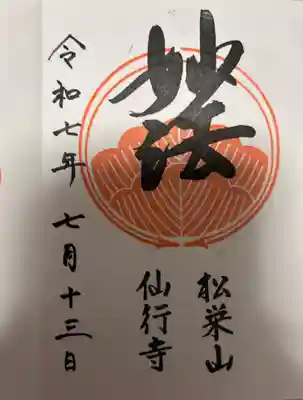 妙法
松栄山
仙行寺
令和七年七月十三日